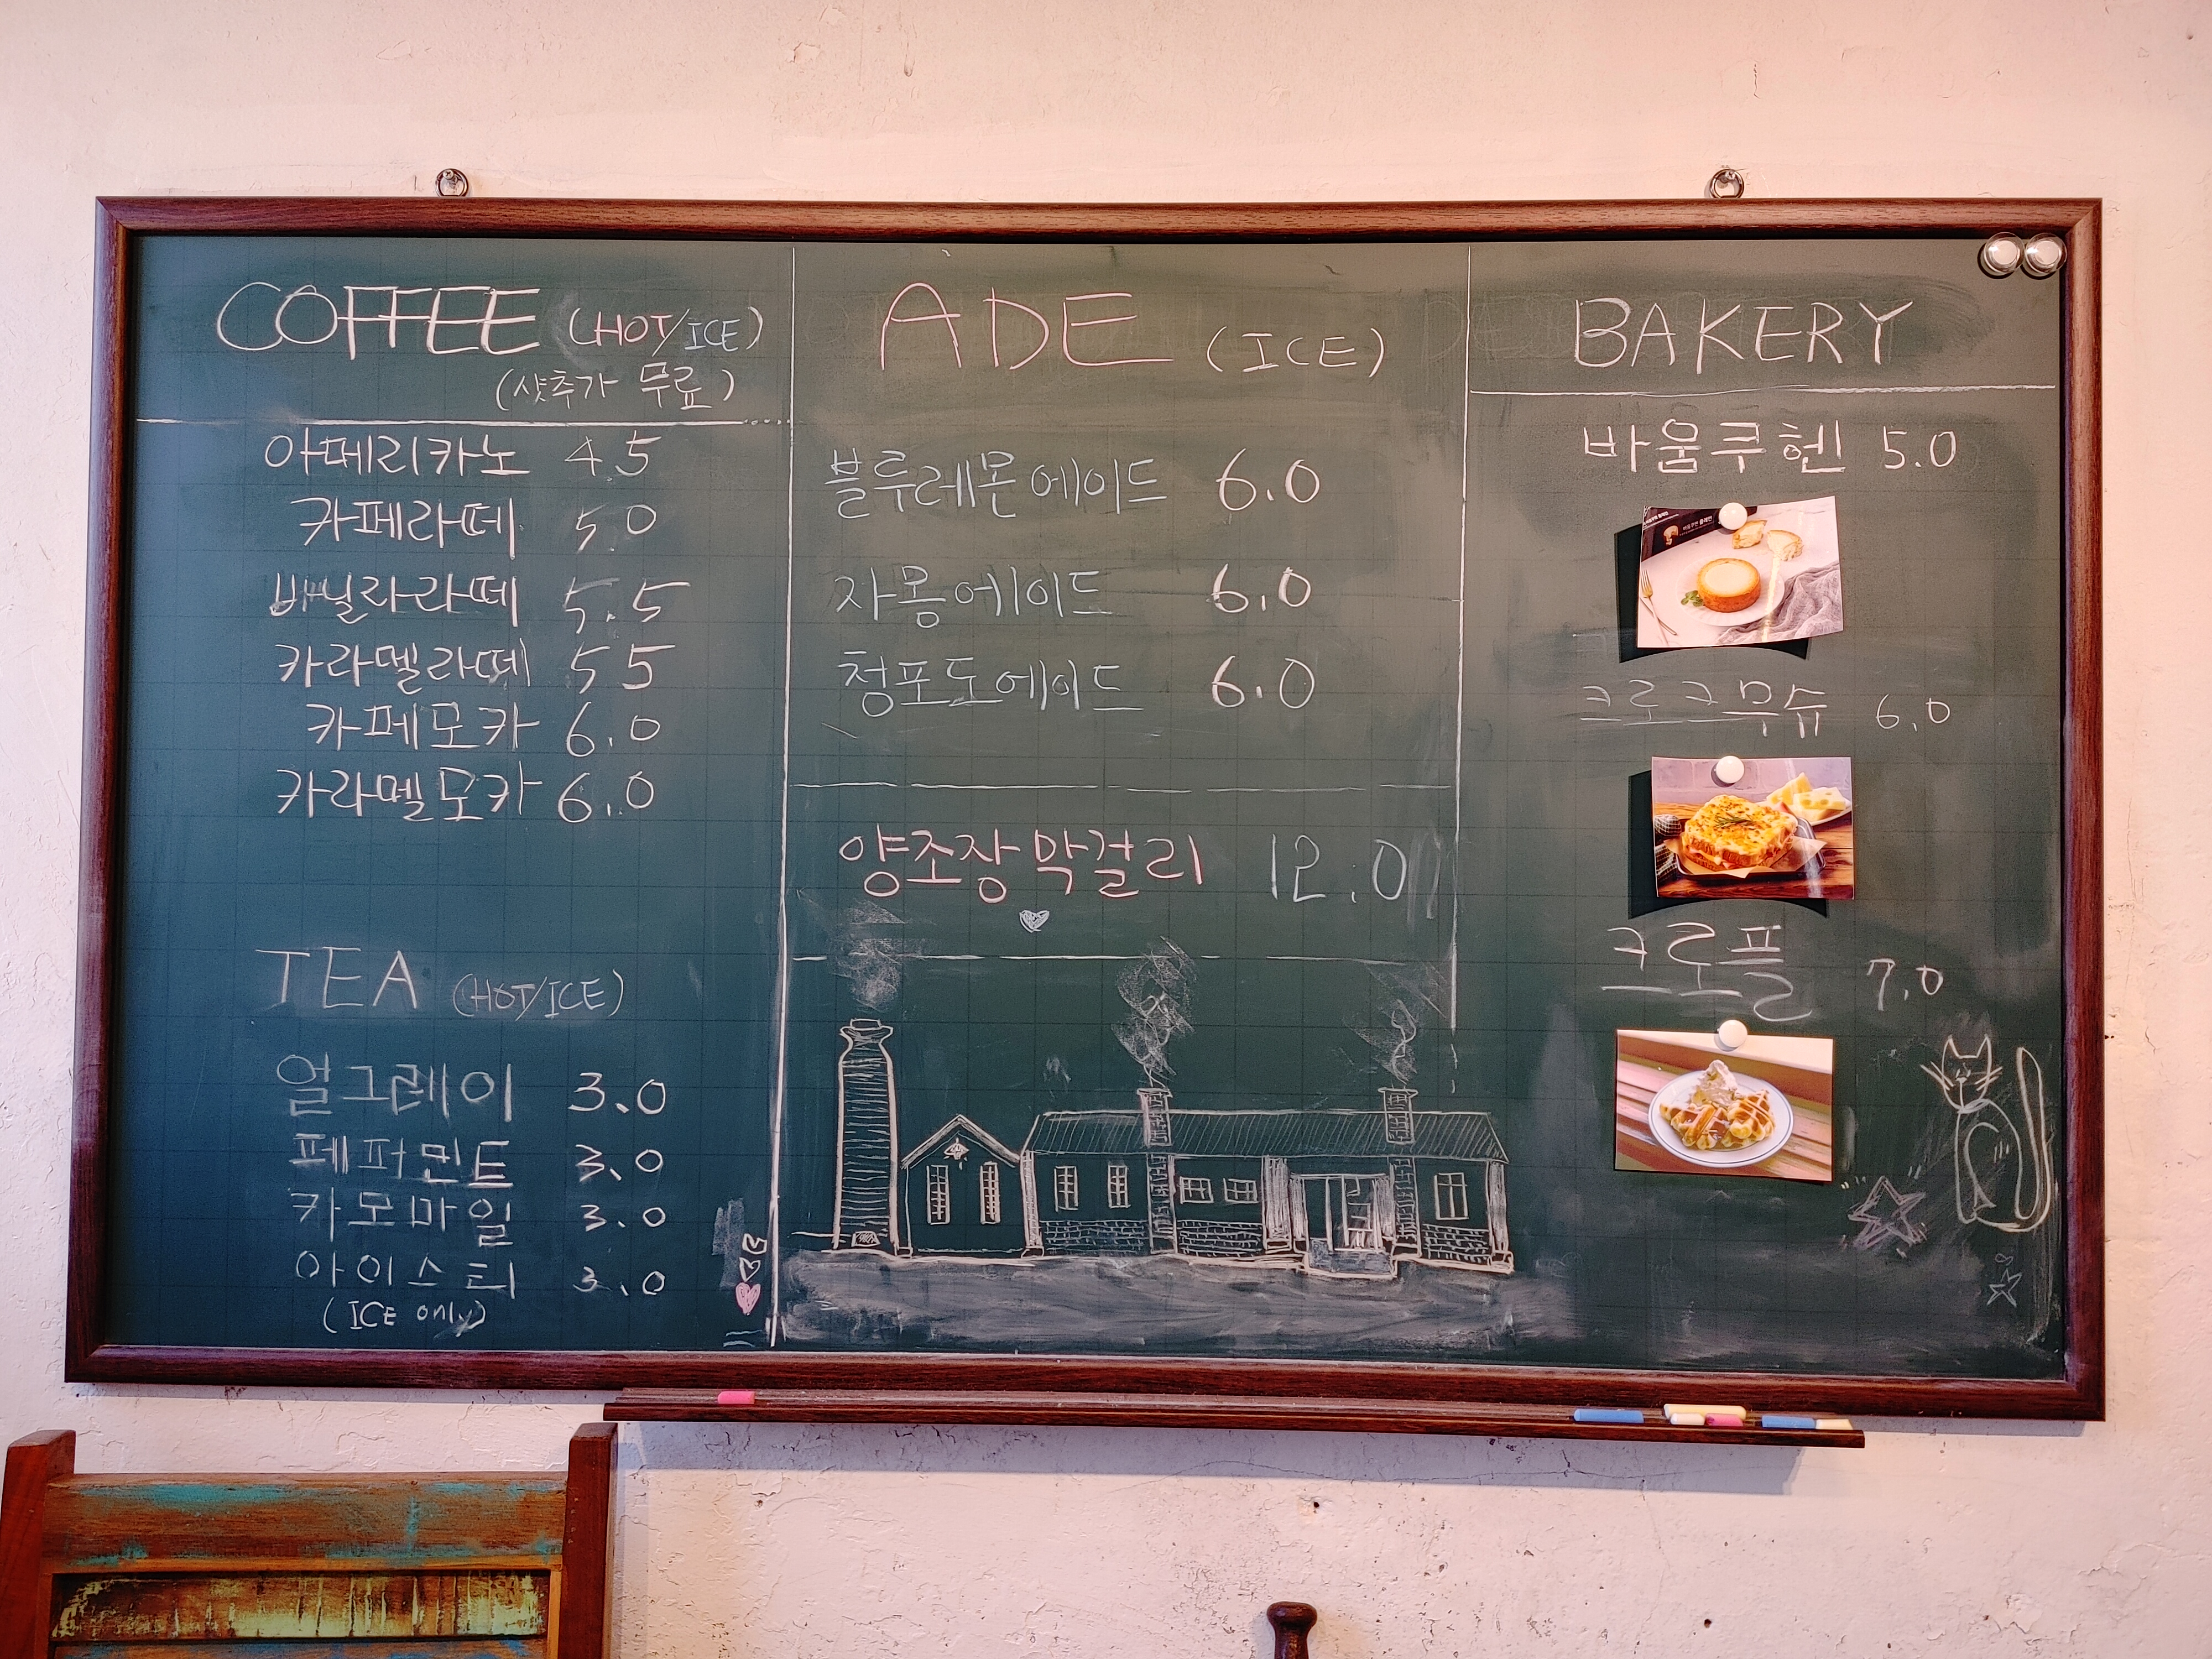 COFFEE (HOT/ICE)
(샷추가 무료)
아메리카노 4.5
카페라떼 5.0
바닐라라떼 5.5
카라멜라떼 5.5
카페모카 6.0
카라멜모카 6.0
TEA (HOT/ICE)
얼그레이 3.0
페퍼민트 3.0
카모마일 3.0
아이스티 3.0
(ICE only)
ADE (ICE)
블루레몬에이드 6.0
자몽에이드 6.0
청포도에이드 6.0
양조장막걸리 12.0
BAKERY
바움쿠헨 5.0
크로크무슈 6.0
크로플 7.0